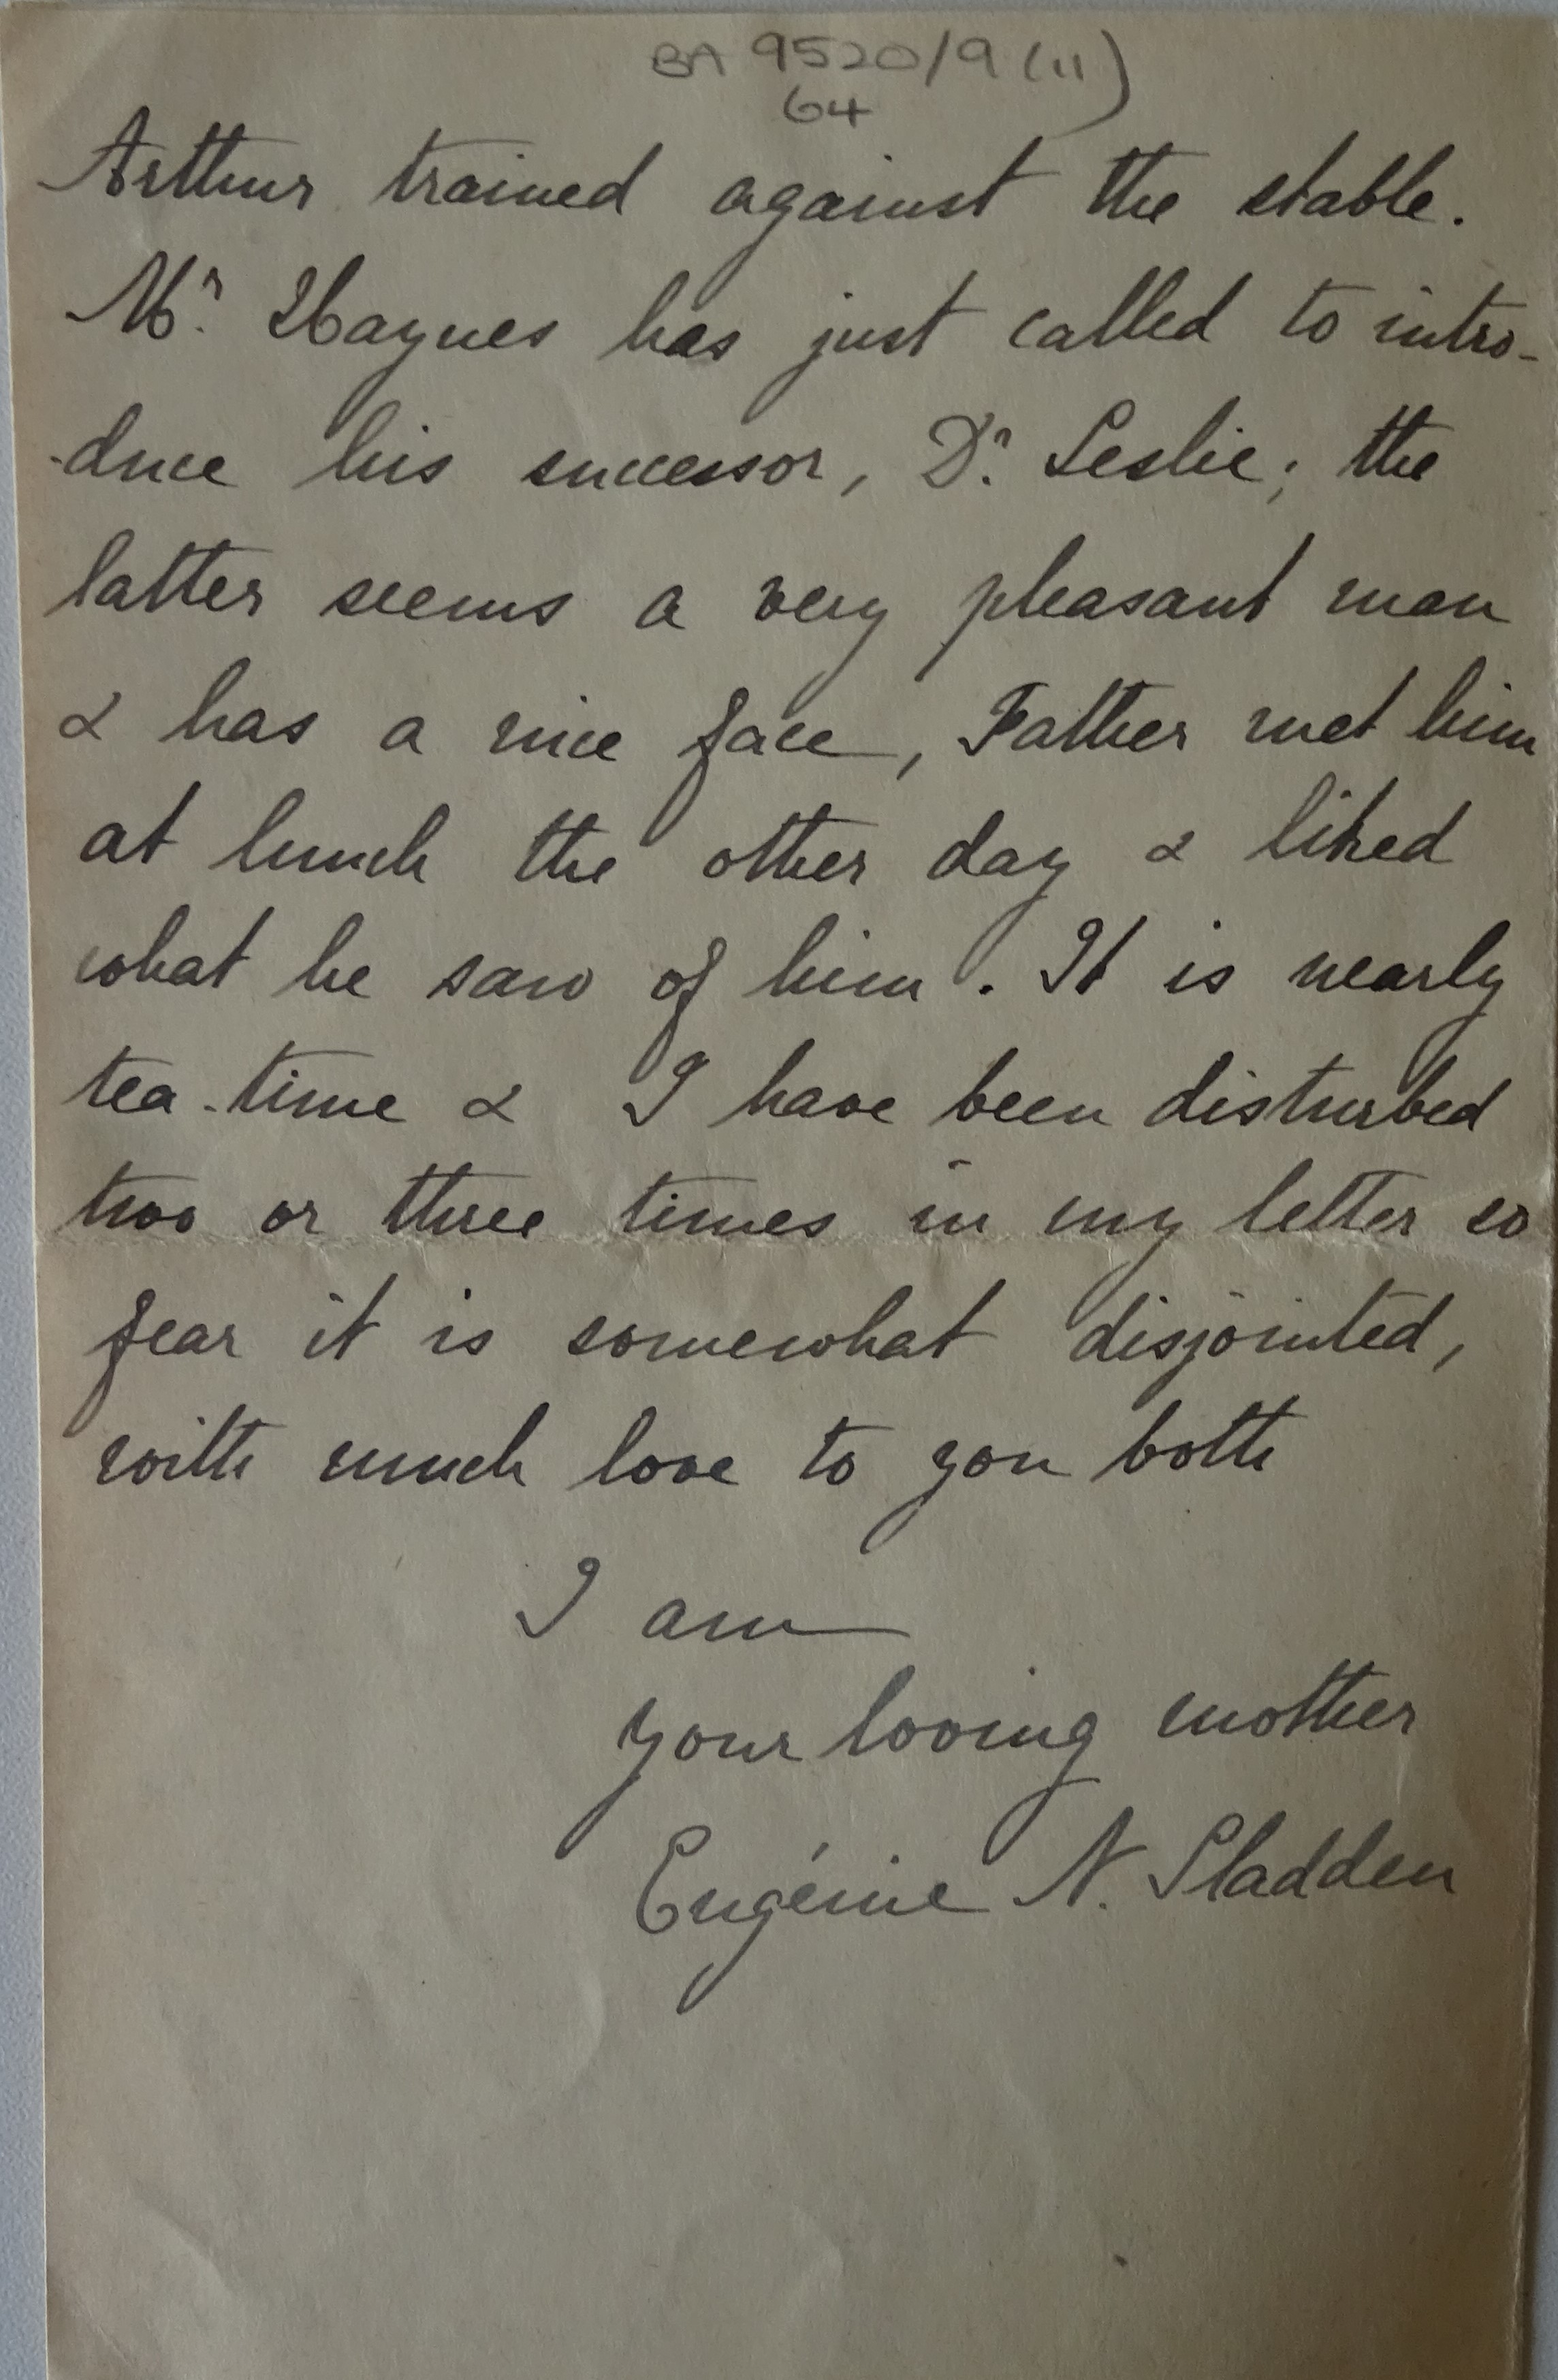 BA 9520/9 (11)
64
Arthur trained against the stable.
Mr. Haynes has just called to intro-
-duce his successor, Dr. Leslie; the
latter seems a very pleasant man
& has a nice face, Father met him
at lunch the other day & liked
what he saw of him. It is nearly
tea-time & I have been disturbed
two or three times in my letter so
fear it is somewhat disjointed,
with much love to you both
I am
your loving mother
Eugénie N. Sladden